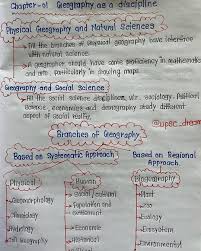 Chapter-01 Geography as a discipline
Physical Geography and Natural Sciences
All the branches of physical geography have interface
with natural sciences.
A geographer should have some proficiency in mathematics
and arts, particularly in drawing maps.
Geography and Social Science
All the social science disciplines, viz. sociology, Political
science, economics and demography study different
aspect of social reality.
@upsc_dream
Branches of Geography
Based on Systematic Approach
Based on Regional
Approach
Physical
Human
Biogeography
Geomorphology
Social/Cultural
Plant
Population and
Zoo
Hydrology
Ecology
Soil Geography
Economic
Environmental